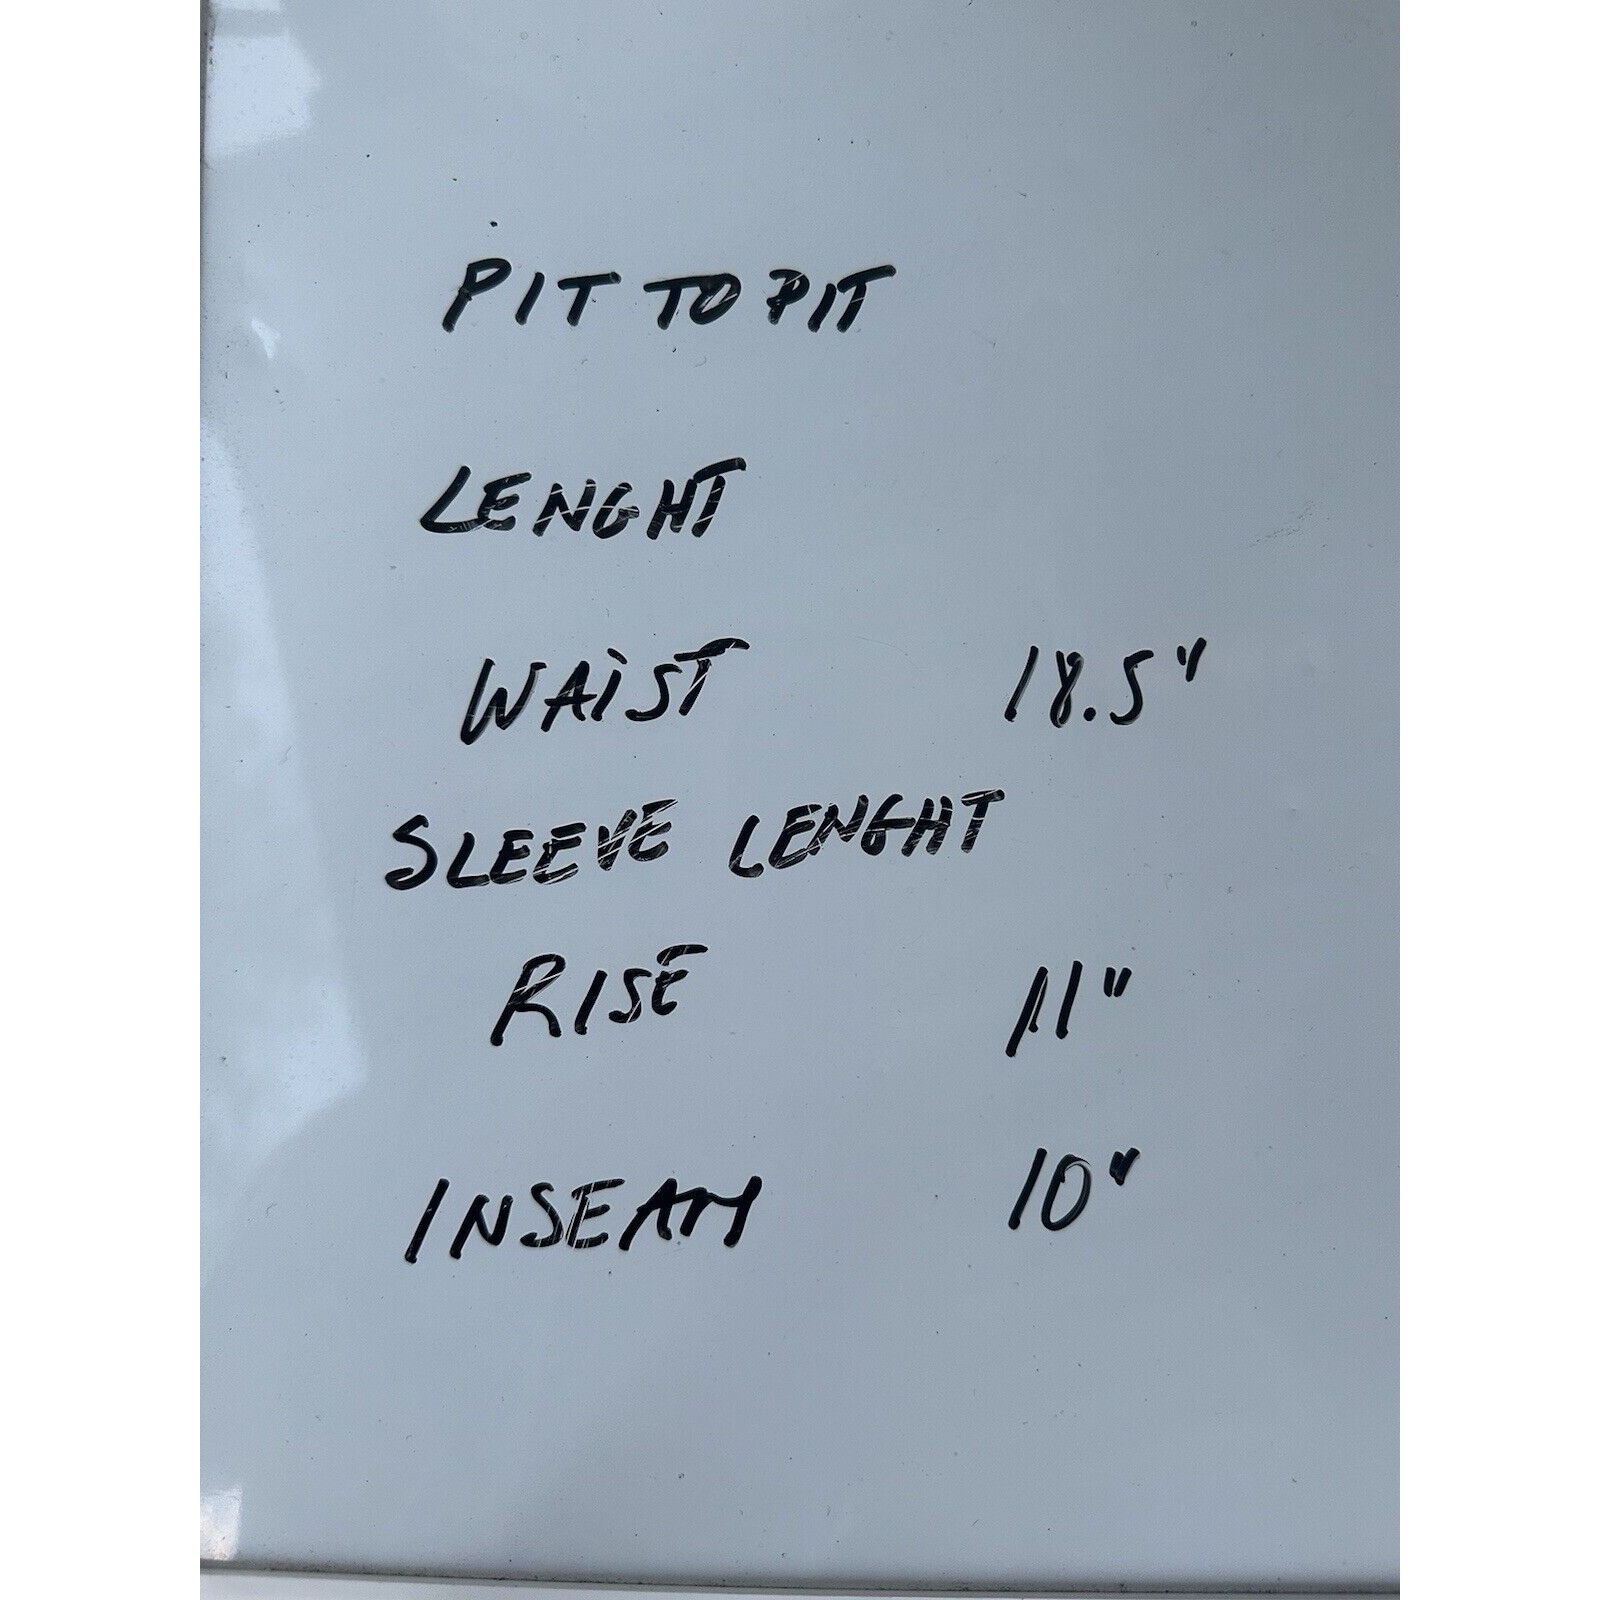 PIT TO PIT
LENGHT
WAiST 18.5"
SLEEVE LENGHT
RISE 11"
INSEAM 10"